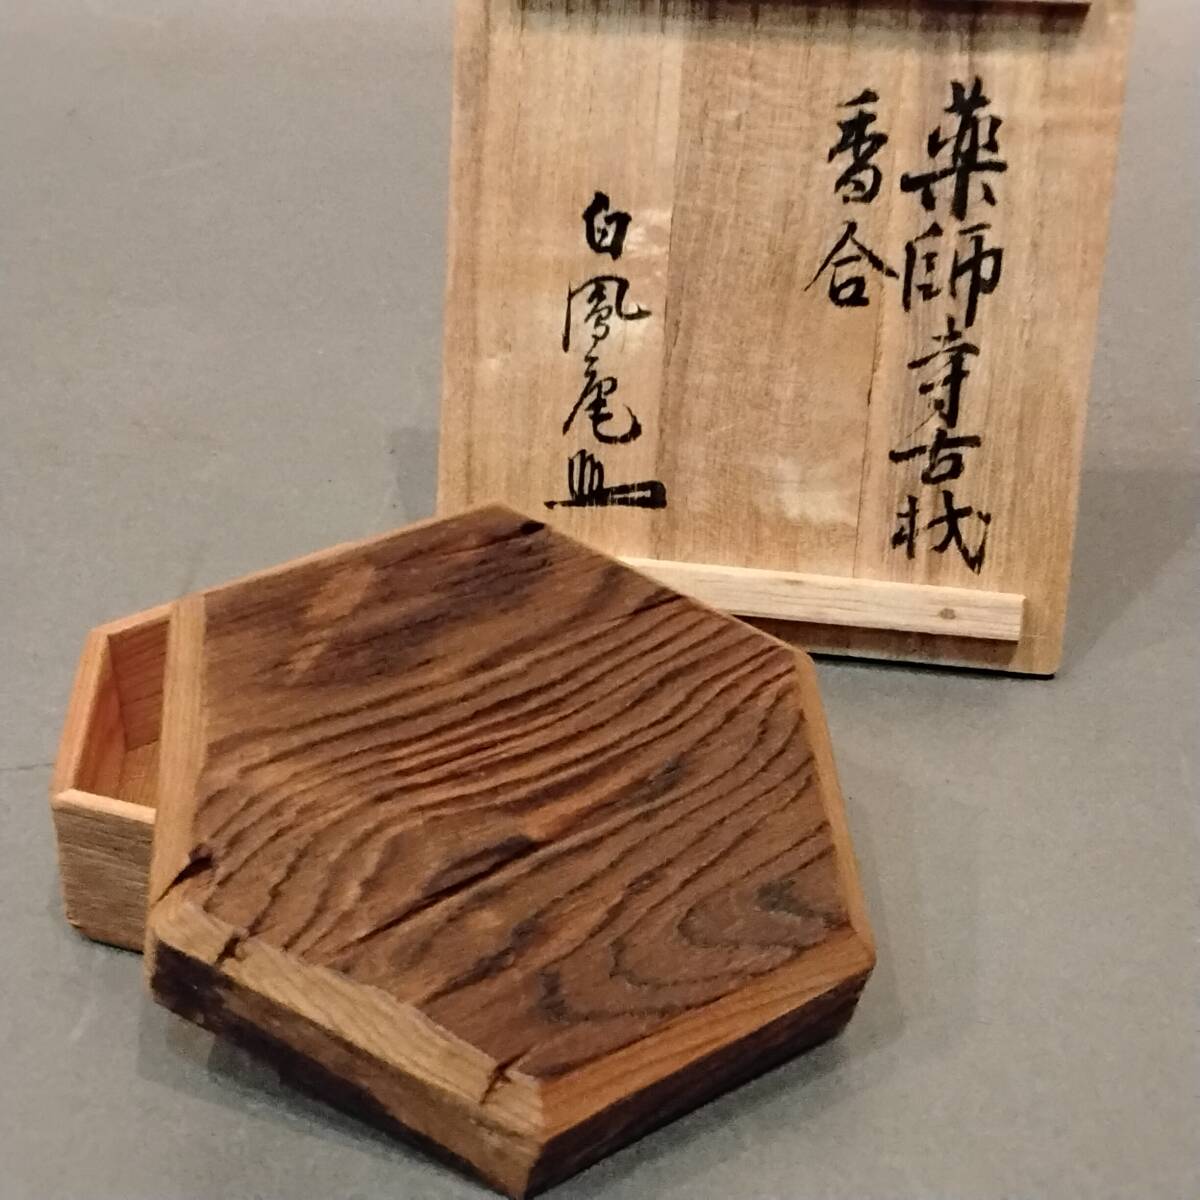 薬師寺古材
香合
白鳳庵